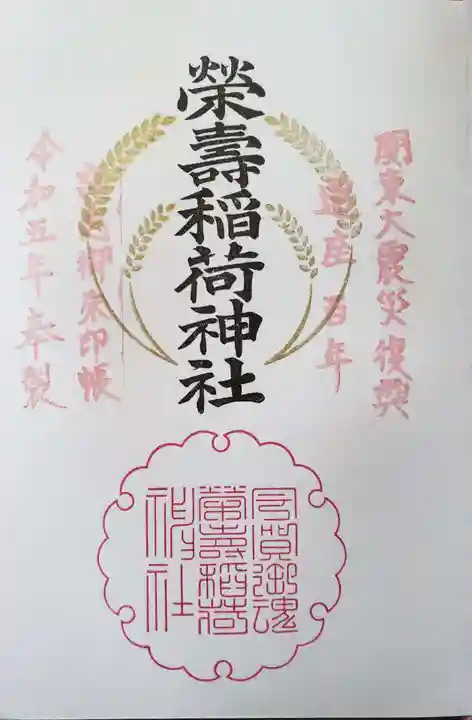 関東大震災復興
遷座百年
榮壽稲荷神社
御朱印帳
令和五年奉製
宇賀御魂
榮壽稲荷
神社